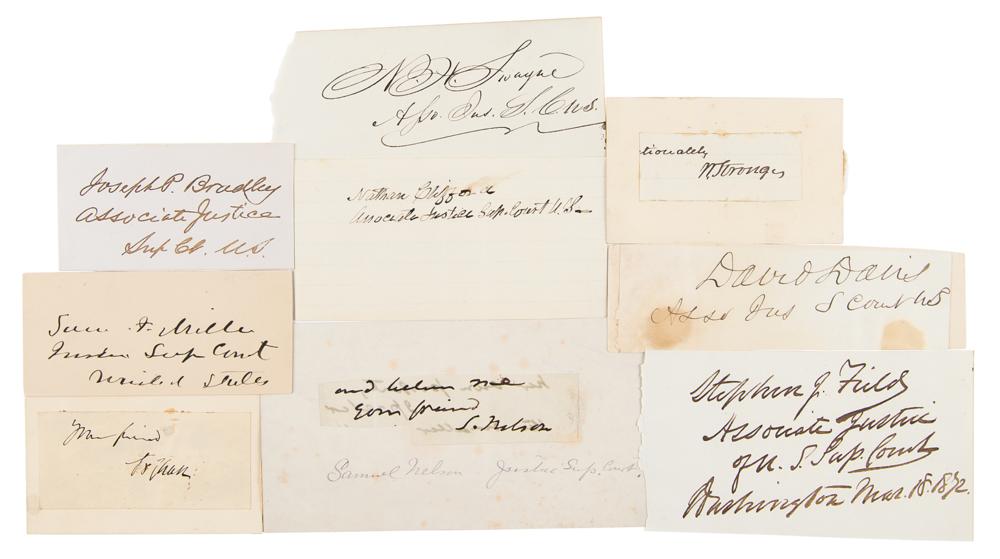 N. H. Swayne
Asso. Jus. S. C. U.S.
tionately
W Strong
Joseph P. Bradley
Associate Justice
Sup Ct. U.S.
Nathan Clifford
Associate Justice Sup. Court U.S.
David Davis
Asso Jus S Court US
Sam. F. Miller
Justice Sup Court
United States
and believe me
your friend
S. Nelson
Samuel Nelson Justice Sup. Court.
Stephen J. Field
Associate Justice
of U. S. Sup. Court
Washington Mar. 18. 1872.
Your friend